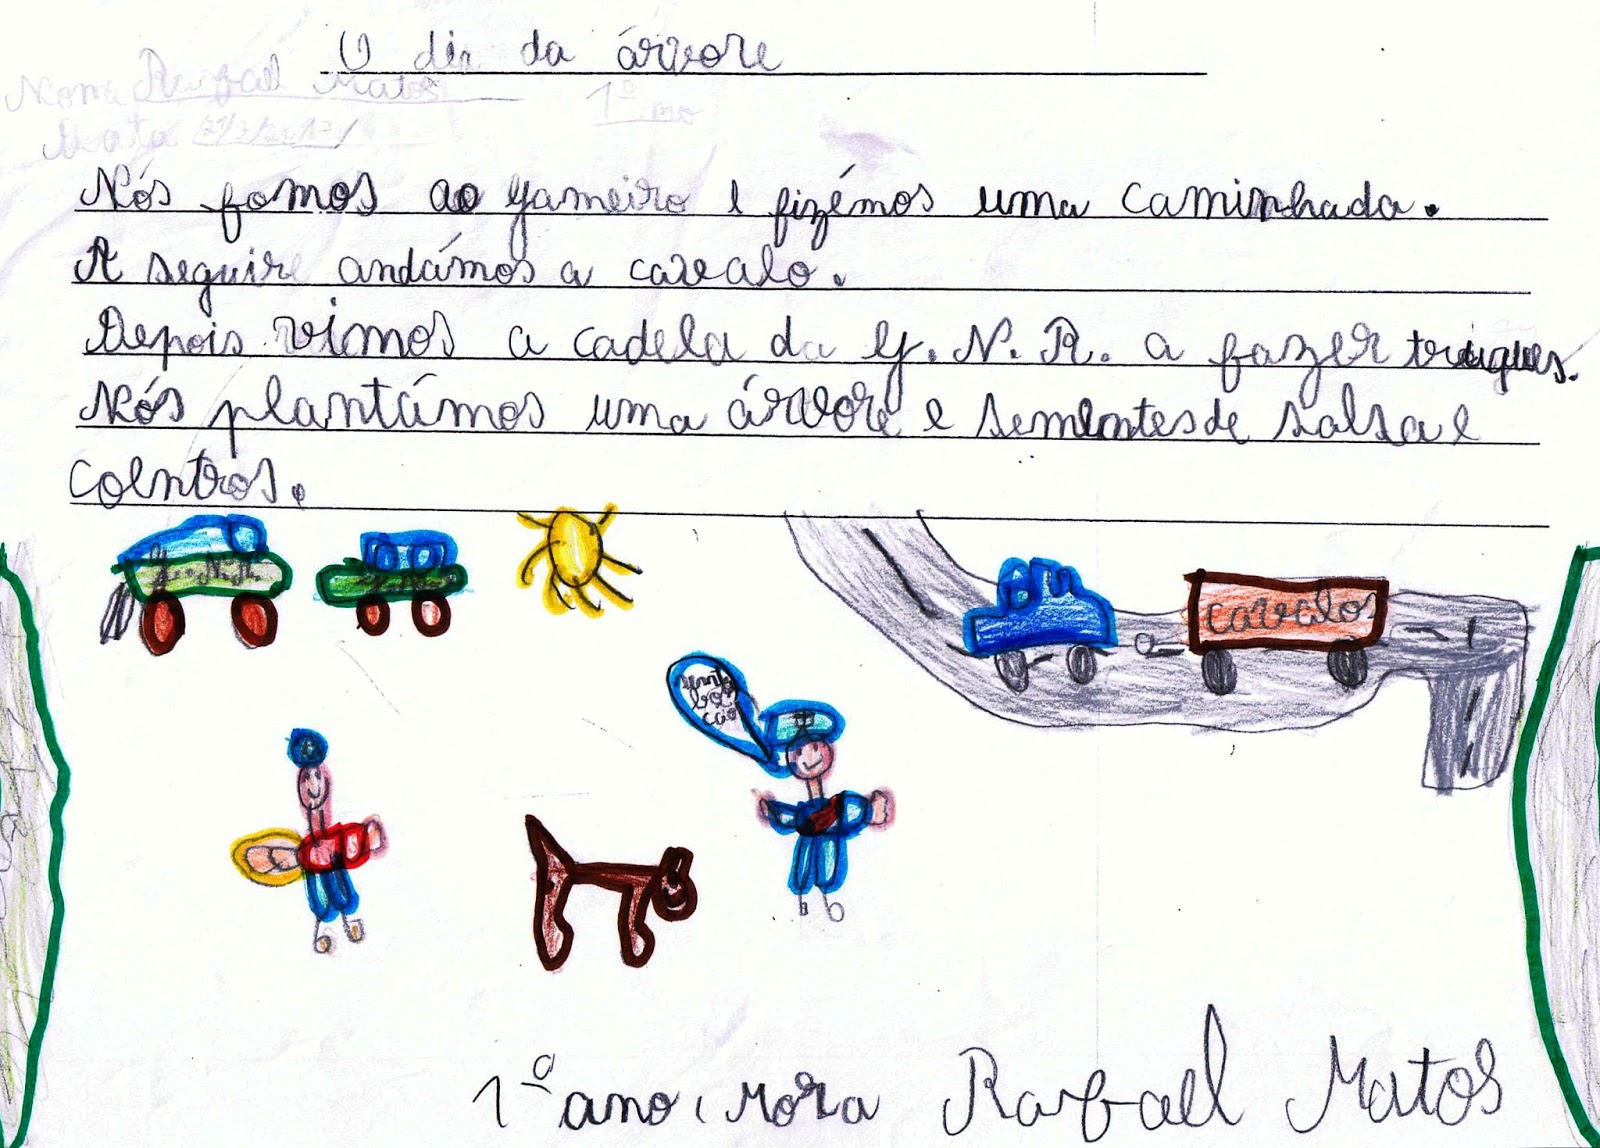 O dia da árvore
Nome Rafael Matos 1º ano
Data
Nós fomos ao Gameiro e fizémos uma caminhada.
A seguire andámos a cavalo.
Depois vimos a cadela da G.N.R. a fazer truques.
Nós plantámos uma árvore e sementes de salsa e
coentros.
G.N.R.
cavalos
1º ano, Mora Rafael Matos